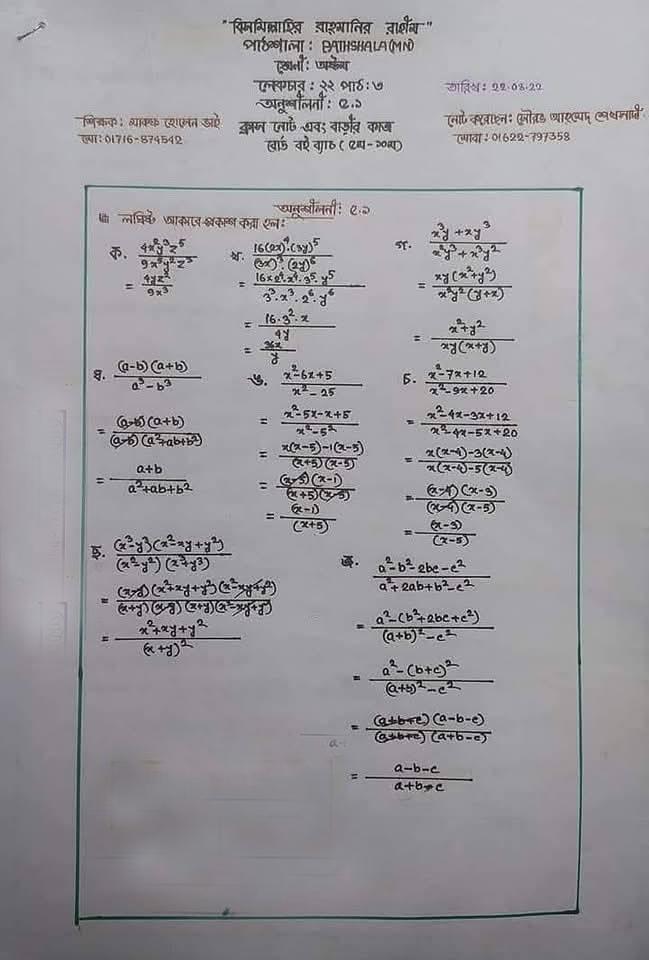 "বিসমিল্লাহির রাহমানির রাহীম"
পাঠশালা : PATHSHALA (MN)
শ্রেনী: অষ্টম
লেকচার : ২২ পাঠ: ৩
তারিখ: ২২.০৪.২২
অনুশীলনী: ৫.১
শিক্ষক: হোসেন ভাই
মো: 01716-874542
ক্লাস নোট এবং বাড়ির কাজ
বোর্ড বই ব্যাচ (৫ম-১০ম)
নোট করেছেন: সৌরভ আহমেদ
মোবা: 01622-797358
অনুশীলনী: ৫.১
লঘিষ্ঠ আকারে প্রকাশ করা হল:
ক. 4x²y³z⁵ / 9x⁵y²z³
= 4yz² / 9x³
খ. 16(2x)⁴·(3y)⁵ / (3x)³·(2y)⁶
= 16×2⁴·x⁴·3⁵·y⁵ / 3³·x³·2⁶·y⁶
= 16·3²·x / 4y
= 36x / y
গ. x³y + xy³ / x²y³ + x³y²
= xy(x²+y²) / x²y²(y+x)
= x²+y² / xy(x+y)
ঘ. (a-b)(a+b) / a³-b³
= (a-b)(a+b) / (a-b)(a²+ab+b²)
= a+b / a²+ab+b²
ঙ. x²-6x+5 / x²-25
= x²-5x-x+5 / x²-5²
= x(x-5)-1(x-5) / (x+5)(x-5)
= (x-5)(x-1) / (x+5)(x-5)
= (x-1) / (x+5)
চ. x²-7x+12 / x²-9x+20
= x²-4x-3x+12 / x²-4x-5x+20
= x(x-4)-3(x-4) / x(x-4)-5(x-4)
= (x-4)(x-3) / (x-4)(x-5)
= (x-3) / (x-5)
ছ. (x³-y³)(x²-xy+y²) / (x²-y²)(x³+y³)
= (x-y)(x²+xy+y²)(x²-xy+y²) / (x+y)(x-y)(x+y)(x²-xy+y²)
= x²+xy+y² / (x+y)²
জ. a²-b²-2bc-c² / a²+2ab+b²-c²
= a²-(b²+2bc+c²) / (a+b)²-c²
= a²-(b+c)² / (a+b)²-c²
= (a+b+c)(a-b-c) / (a+b+c)(a+b-c)
= a-b-c / a+b-c